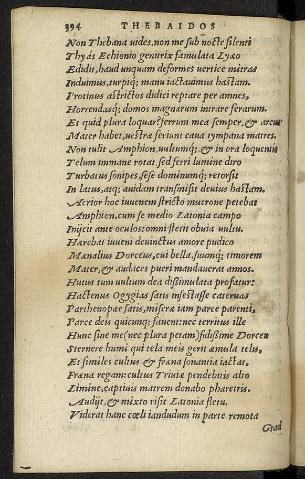 394 THEBAIDOS
Non Thebana uides, non me sub nocte silenti
Thyás Echionio genitrix famulata Lyæo
Edidit, haud unquam deformes uertice mitras
Induimus, turpiq; manu iactauimus hastam.
Protinus astrictos didici reptare per amnes,
Horrendasq; domos magnarum intrare ferarum.
Et quid plura loquar? ferrum mea semper, & arcus
Mater habet, uestra feriunt caua tympana matres.
Non tulit Amphion, uultumq; & in ora loquentis
Telum immane rotat, sed ferri lumine diro
Turbatus sonipes, sese dominumq; retorsit
In latus, atq; auidam transmisit deuius hastam.
Acrior hoc iuuenem stricto mucrone petebat
Amphion, cum se medio Latonia campo
Inijcit ante oculos: omni stetit obuia uultu.
Hærebat iuueni deuinctus amore pudico
Mænalius Dorceus, cui bella, suumq; timorem
Mater, & audaces pueri mandauerat annos.
Huius tum uultum dea dissimulata profatur:
Hactenus Ogygias satis infestasse cateruas
Parthenopæe satis, miseræ iam parce parenti,
Parce deis quicunq; fauent: nec territus ille
Hunc sine me (nec plura petam) fidissime Dorceu
Sternere humi qui tela meis gerit æmula telis,
Et similes cultus & fræna sonantia iactat.
Fræna regam: cultus Triuiæ pendebitis alto
Limine, captiuis matrem donabo pharetris.
Audijt, & mixto risit Latonia fletu.
Viderat hanc cœli iandudum in parte remota
Grad